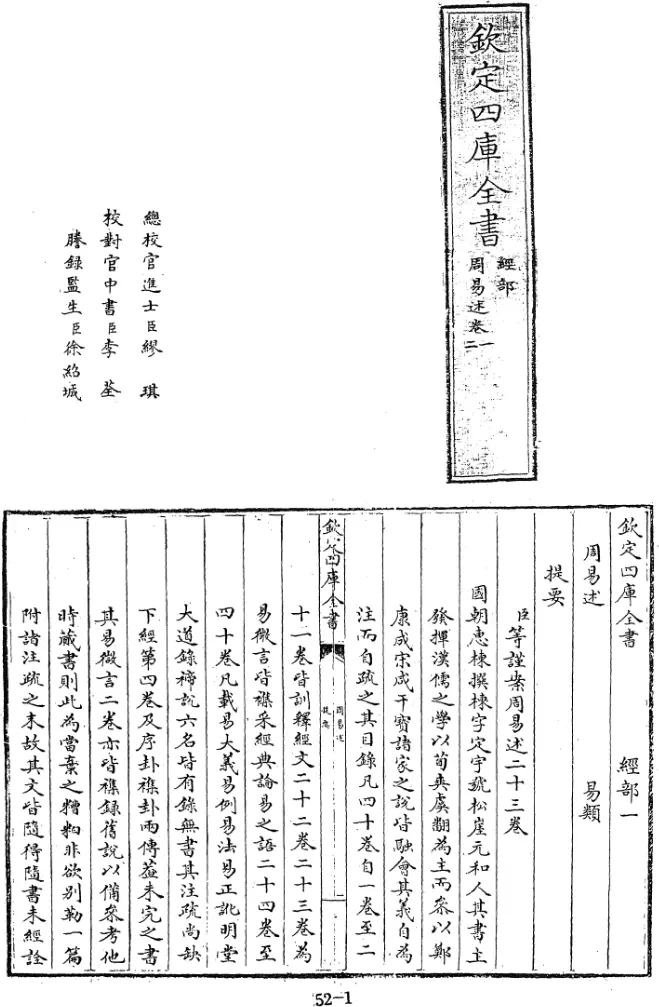 欽定四庫全書
經部
周易述卷一
二
總校官進士臣繆琪
校對官中書臣李荃
謄錄監生臣徐紹墄
欽定四庫全書 經部一
周易述 易類
提要
臣等謹案周易述二十三卷
國朝惠棟撰棟字定宇號松崖元和人其書主
發揮漢儒之學以荀爽虞翻為主而參以鄭
康成宋咸干寶諸家之說皆融會其義自為
注而自疏之其目錄凡四十卷自一卷至二
欽定四庫全書
周易述
提要
一
十一卷皆訓釋經文二十二卷二十三卷為
易微言皆襍采經典論易之語二十四卷至
四十卷凡載易大義易例易法易正訛明堂
大道錄禘說六名皆有錄無書其注疏尚缺
下經第四卷及序卦襍卦兩傳葢未完之書
其易微言二卷亦皆襍錄舊說以備參考他
時藏書則此為當棄之糟粕非欲別勒一篇
附諸注疏之末故其文皆隨得隨書未經詮
52-1